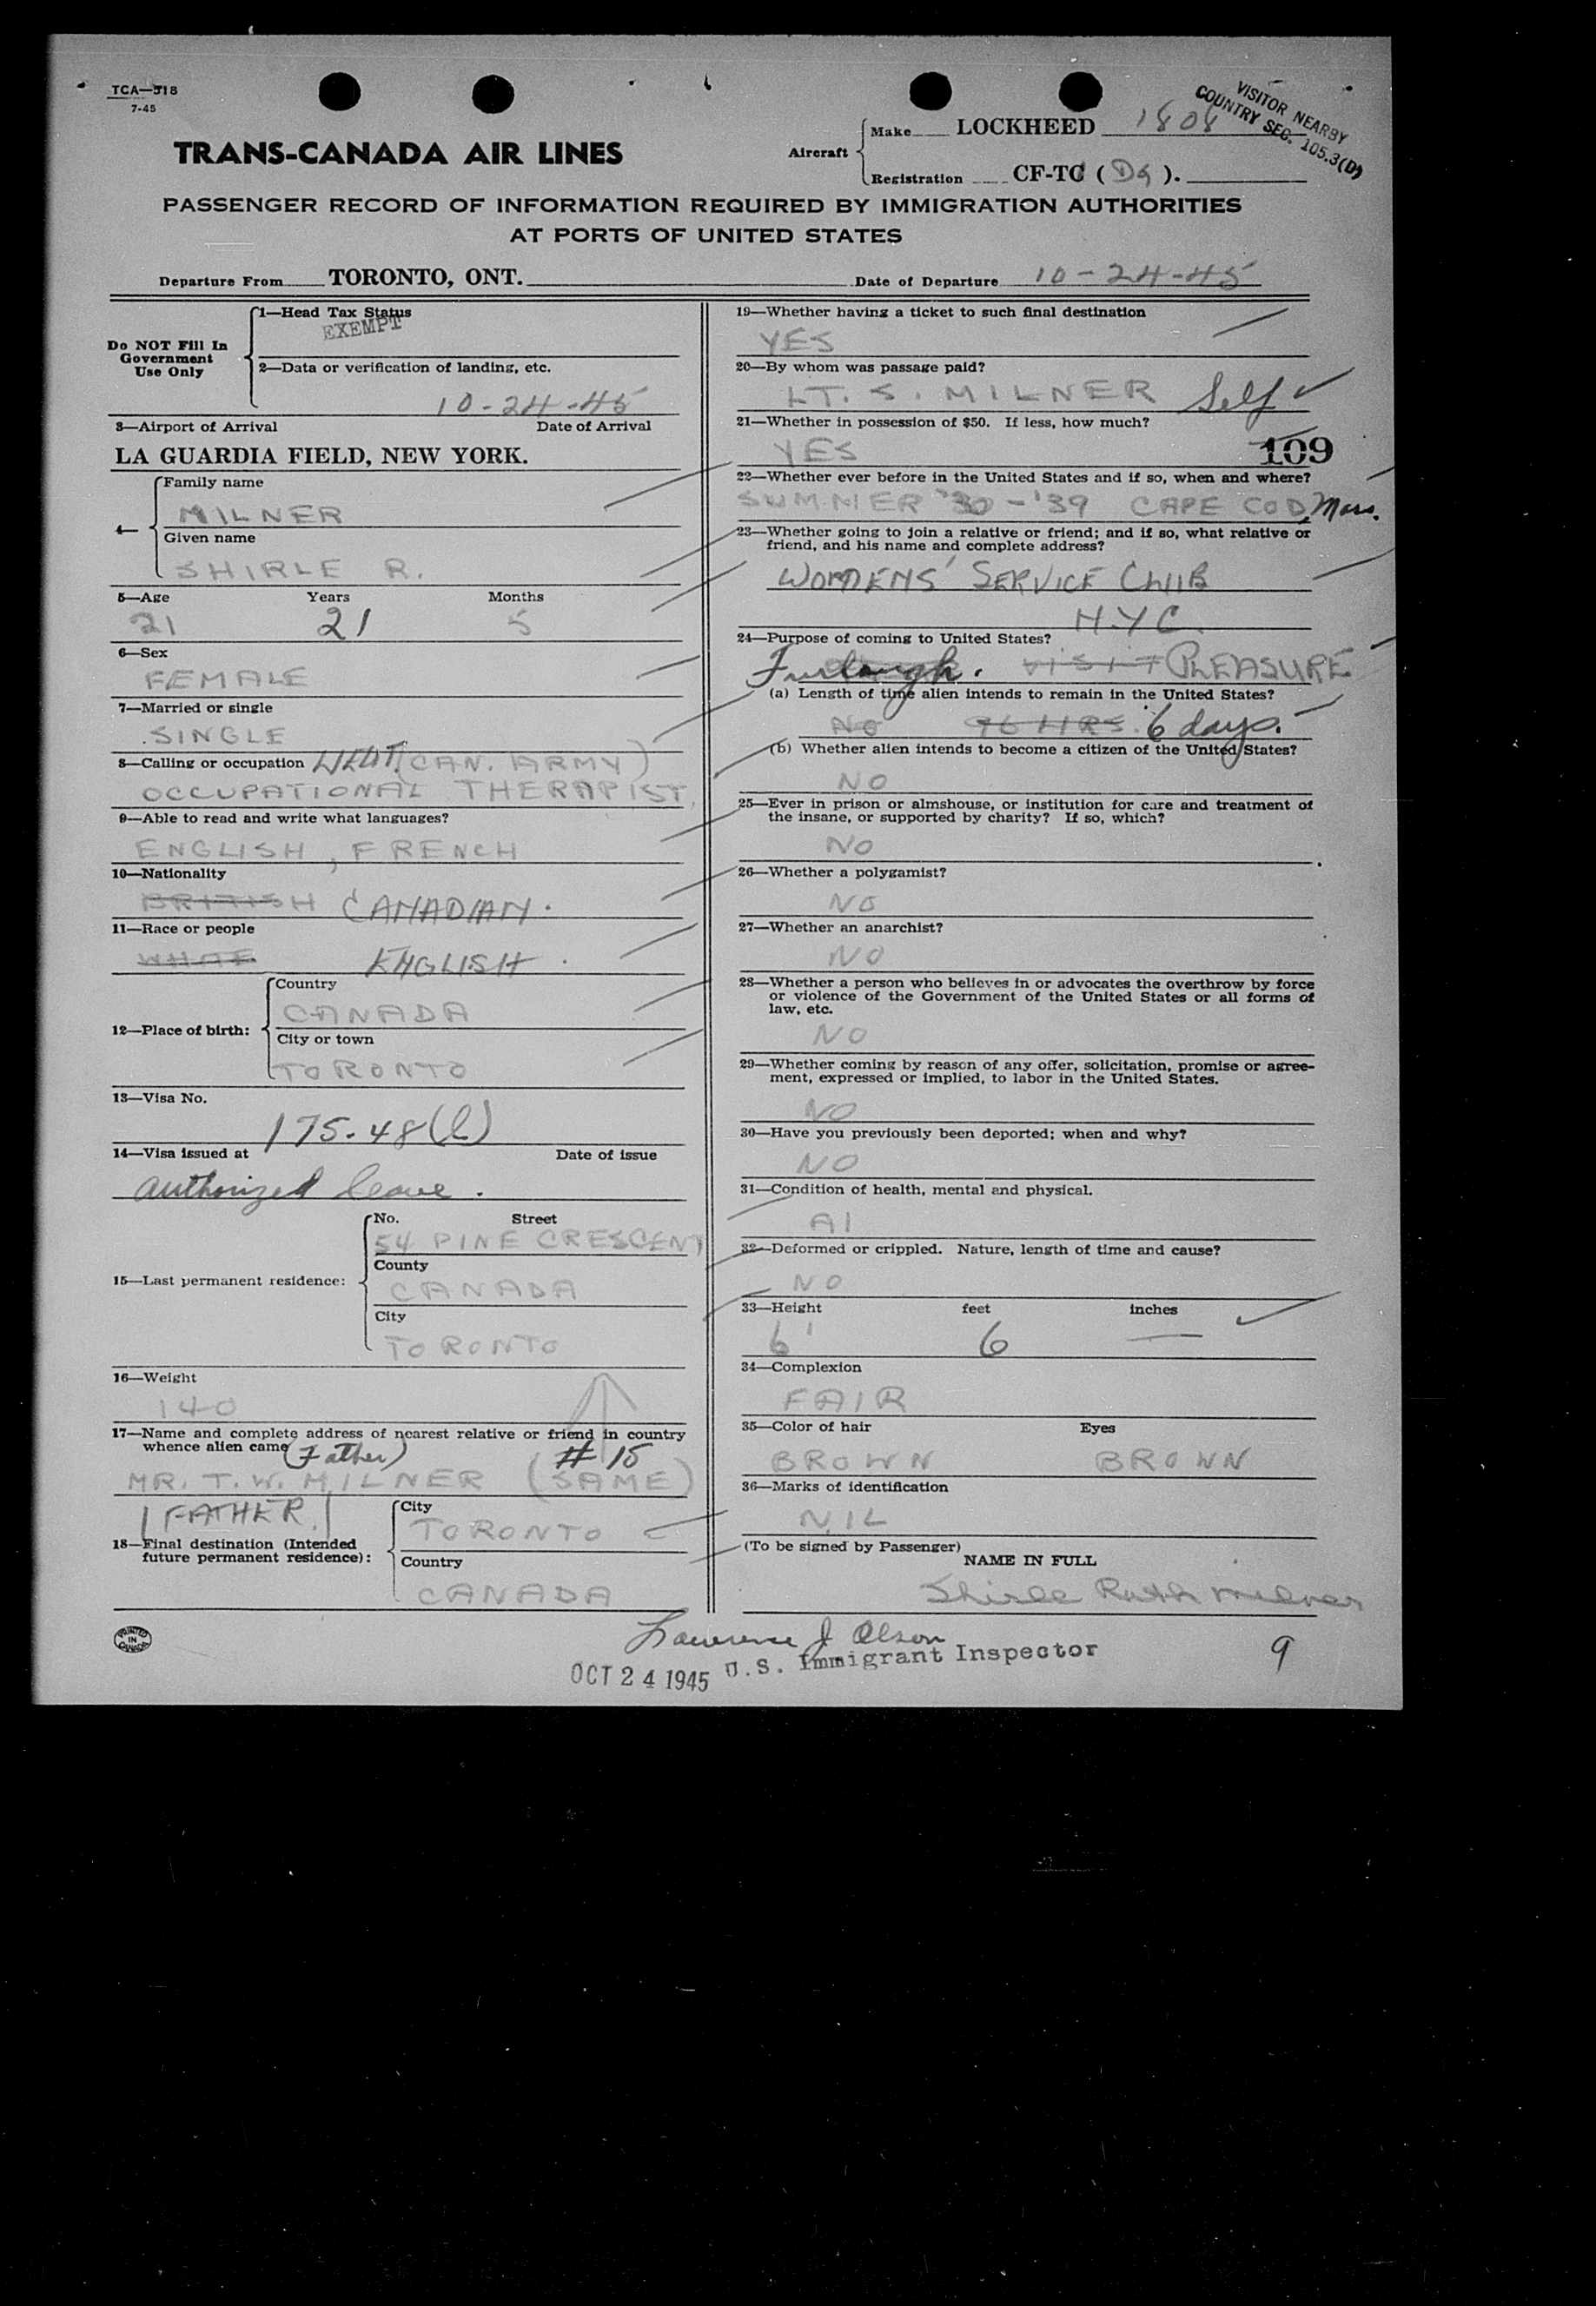 TCA—518
7-45
VISITOR NEARBY
COUNTRY SEC. 105.3(D)
TRANS-CANADA AIR LINES
Aircraft
Make LOCKHEED 1808
Registration CF-TC ( DG ).
PASSENGER RECORD OF INFORMATION REQUIRED BY IMMIGRATION AUTHORITIES
AT PORTS OF UNITED STATES
Departure From TORONTO, ONT.
Date of Departure 10-24-45
Do NOT Fill In
Government
Use Only
1—Head Tax Status
EXEMPT
2—Data or verification of landing, etc.
10-24-45
3—Airport of Arrival Date of Arrival
LA GUARDIA FIELD, NEW YORK.
4—
Family name
MILNER
Given name
SHIRLE R.
5—Age Years Months
21 21 5
6—Sex
FEMALE
7—Married or single
SINGLE
8—Calling or occupation LIEUT. (CAN. ARMY)
OCCUPATIONAL THERAPIST,
9—Able to read and write what languages?
ENGLISH, FRENCH
10—Nationality
BRITISH CANADIAN.
11—Race or people
WHITE ENGLISH.
12—Place of birth:
Country
CANADA
City or town
TORONTO
13—Visa No.
175.48(b)
14—Visa issued at Date of issue
authorized leave.
15—Last permanent residence:
No. Street
54 PINE CRESCENT
County
CANADA
City
TORONTO
16—Weight
140
17—Name and complete address of nearest relative or friend in country
whence alien came (Father) # 15
MR. T. W. MILNER (SAME)
(FATHER.)
18—Final destination (Intended
future permanent residence):
City
TORONTO
Country
CANADA
19—Whether having a ticket to such final destination
YES
20—By whom was passage paid?
LT. S. MILNER Self
21—Whether in possession of $50. If less, how much?
YES
109
22—Whether ever before in the United States and if so, when and where?
SUMMER '30-'39 CAPE COD, Mass.
23—Whether going to join a relative or friend; and if so, what relative or
friend, and his name and complete address?
WOMENS' SERVICE CLUB
N.Y.C.
24—Purpose of coming to United States?
Furlough. VISIT PLEASURE
(a) Length of time alien intends to remain in the United States?
NO 96 HRS. 6 days.
(b) Whether alien intends to become a citizen of the United States?
NO
25—Ever in prison or almshouse, or institution for care and treatment of
the insane, or supported by charity? If so, which?
NO
26—Whether a polygamist?
NO
27—Whether an anarchist?
NO
28—Whether a person who believes in or advocates the overthrow by force
or violence of the Government of the United States or all forms of
law, etc.
NO
29—Whether coming by reason of any offer, solicitation, promise or agree-
ment, expressed or implied, to labor in the United States.
NO
30—Have you previously been deported; when and why?
NO
31—Condition of health, mental and physical.
A1
32—Deformed or crippled. Nature, length of time and cause?
NO
33—Height feet inches
6' 6 —
34—Complexion
FAIR
35—Color of hair Eyes
BROWN BROWN
36—Marks of identification
NIL
(To be signed by Passenger)
NAME IN FULL
Shirle Ruth Milner
PRINTED IN CANADA
Lawrence J Olson
OCT 24 1945 U.S. Immigrant Inspector
9